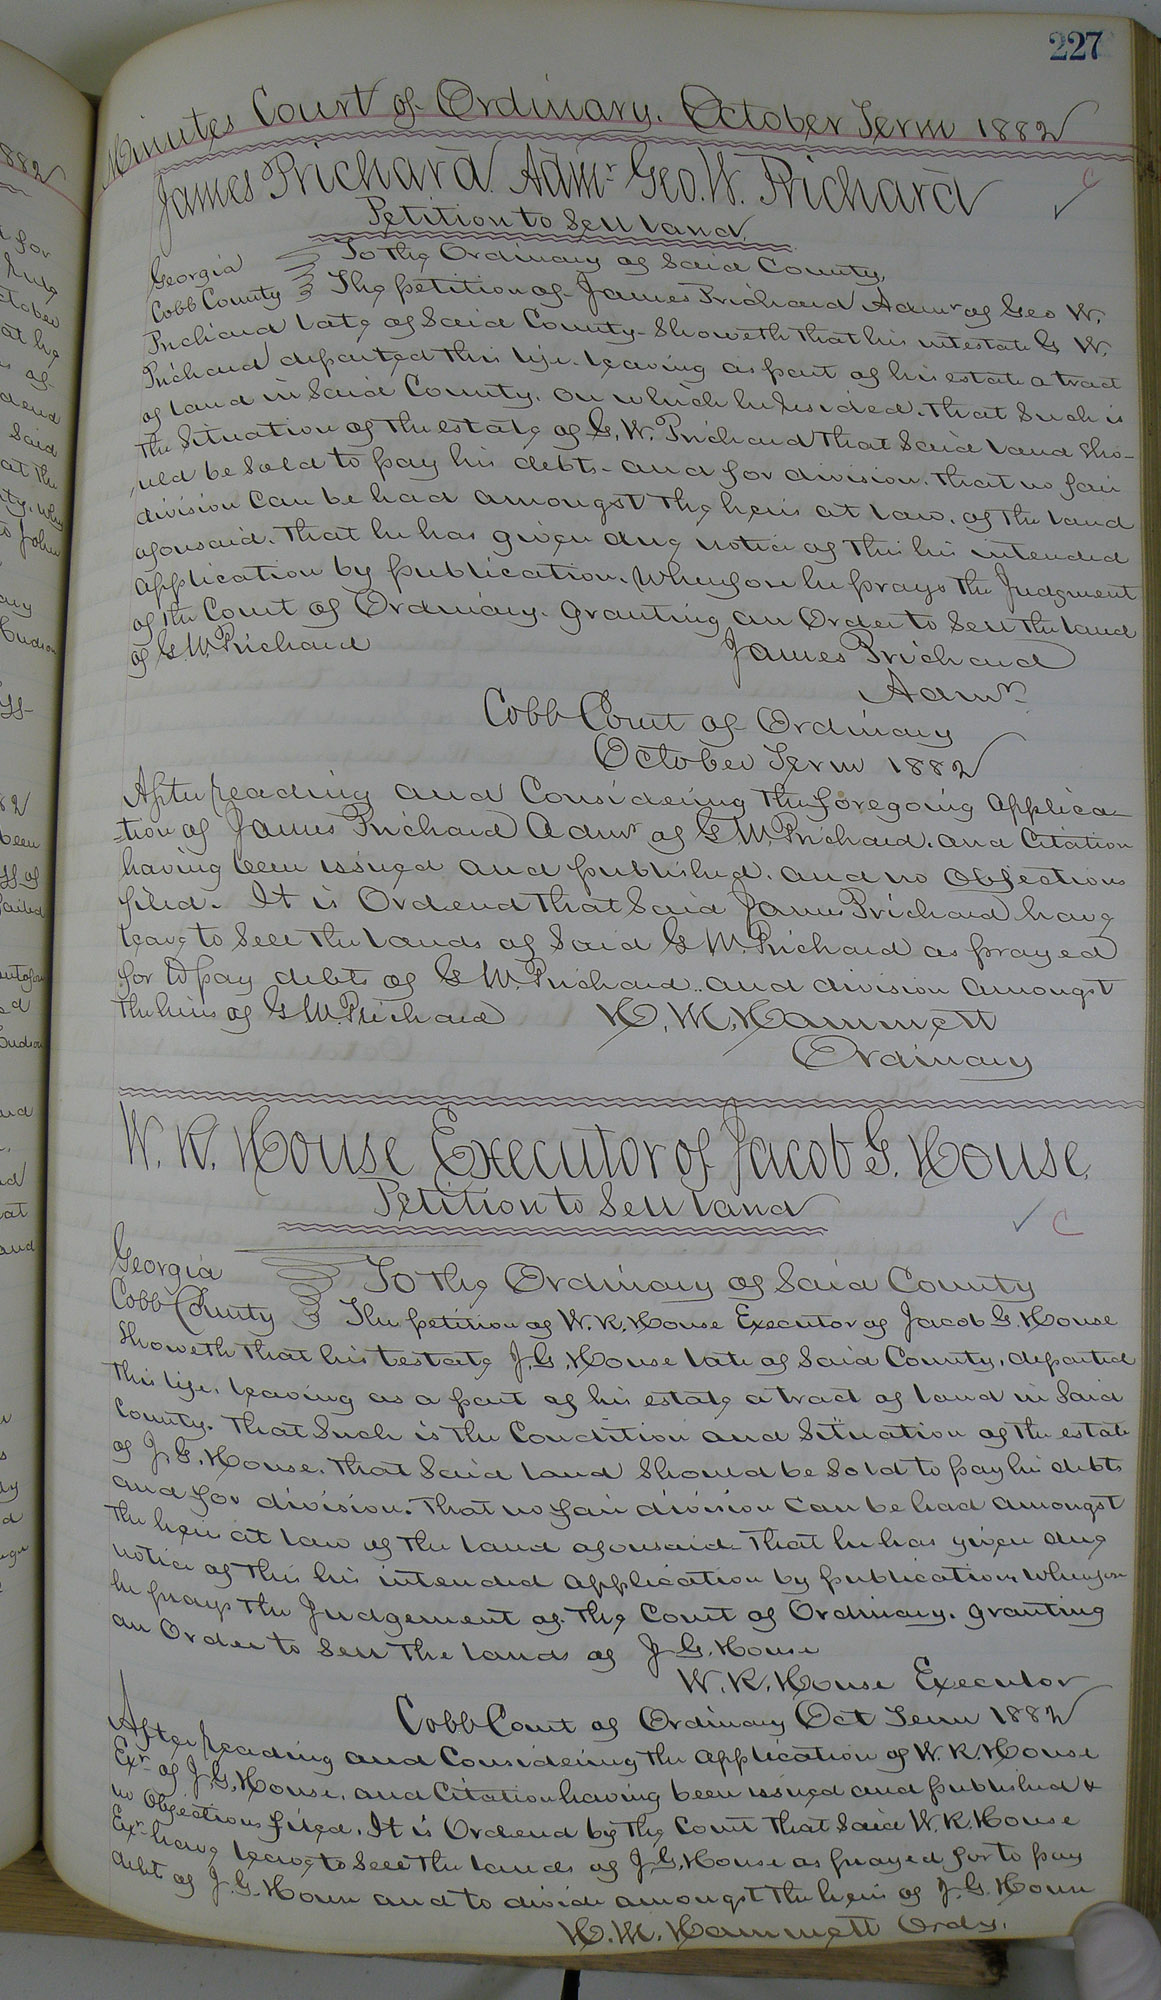 227
Minutes Court of Ordinary. October Term 1882
James Prichard Admr Geo. W. Prichard
Petition to Sell land
Georgia To the Ordinary of Said County
Cobb County The petition of James Prichard Admr of Geo W.
Prichard late of Said County Showeth that his intestate G W.
Prichard departed this life. leaving as part of his estate a tract
of land in Said County. on which he Resided. that Such is
the Situation of the estate of G. W. Prichard that Said land Sho-
uld be Sold to pay his debts - and for division. that no fair
division Can be had amongst the heirs at law. of the land
aforesaid. that he has given due notice of this his intended
application by publication. Wherefore he prays the Judgment
of the Court of Ordinary. granting an Order to Sell the land
of G. W. Prichard James Prichard
Admr
Cobb Court of Ordinary
October Term 1882
After reading and Considering the foregoing applica-
-tion of James Prichard Admr of G W. Prichard. and Citation
having been issued and published. and no Objections
filed. It is Ordered that Said James Prichard have
leave to Sell the lands of Said G W. Prichard as prayed
for to pay debts of G W. Prichard.. and division amongst
the heirs of G W. Prichard H. M. Hammett
Ordinary
W. R. House Executor of Jacob G. House.
Petition to Sell land
Georgia To the Ordinary of Said County
Cobb County The petition of W. R. House Executor of Jacob G. House
Showeth that his testate J. G. House late of Said County. departed
this life. leaving as a part of his estate a tract of land in Said
County. that Such is the Condition and Situation of the estate
of J. G. House. that Said land Should be Sold to pay his debts
and for division. that no fair division can be had amongst
the heirs at law of the land aforesaid that he has given due
notice of this his intended application by publication. Wherefore
he prays the Judgement of the Court of Ordinary. granting
an Order to Sell the lands of J. G. House
W. R. House Executor
Cobb Court of Ordinary Oct Term 1882
After reading and Considering the application of W. R. House
Exr of J. G. House. and Citation having been issued and published &
no Objections filed. It is Ordered by the Court that Said W. R. House
Exr have leave to Sell the lands of J. G. House as prayed for to pay
debt of J. G. House and to divide amongst the heirs of J. G. House
H. M. Hammett Ordy.